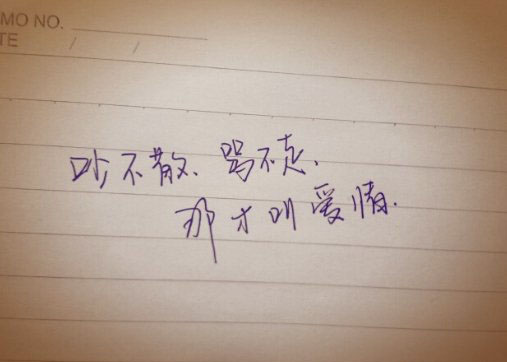 MO NO.
TE / /
吵不散、骂不走.
那才叫爱情.